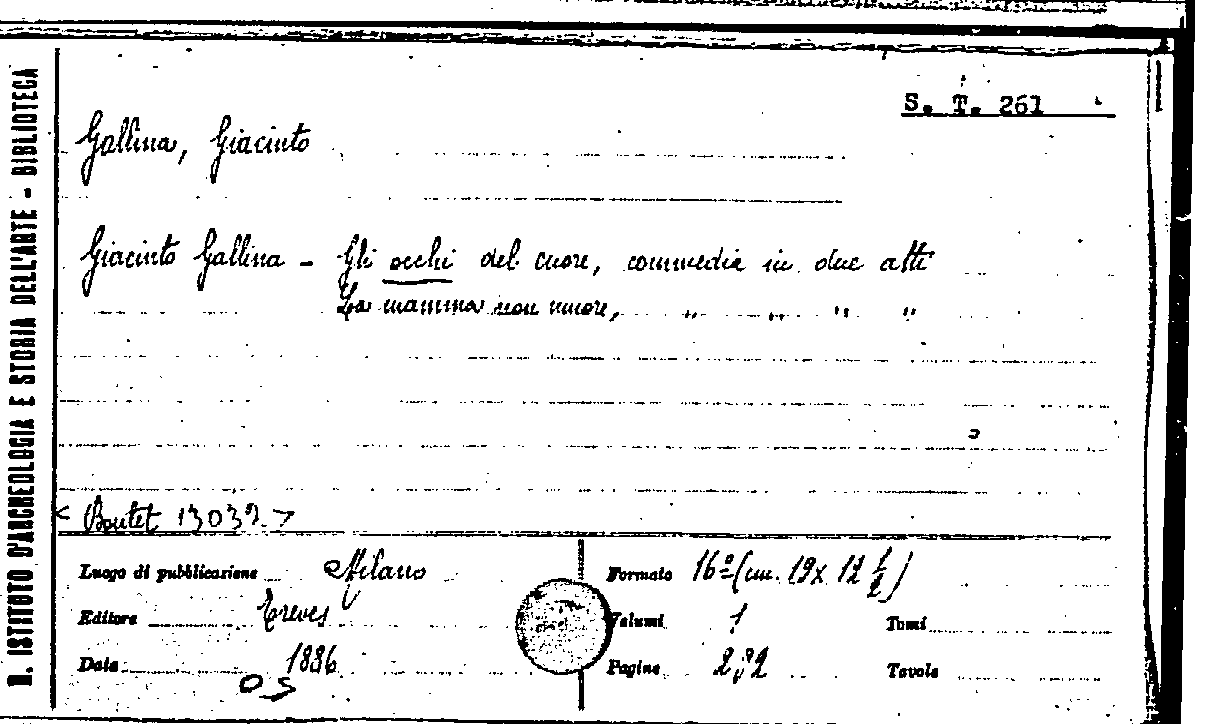 R. ISTITUTO D'ARCHEOLOGIA E STORIA DELL'ARTE - BIBLIOTECA
S. T. 261
Gallina, Giacinto
Giacinto Gallina - Gli occhi del cuore, commedia in due atti
La mamma non muore, " " " "
< Boutet 13032 >
Luogo di pubblicazione Milano
Editore Treves
Data 1886
OS
Formato 16º (cm. 19 x 12 1/2)
Volumi 1 Tomi
Pagine Tavole